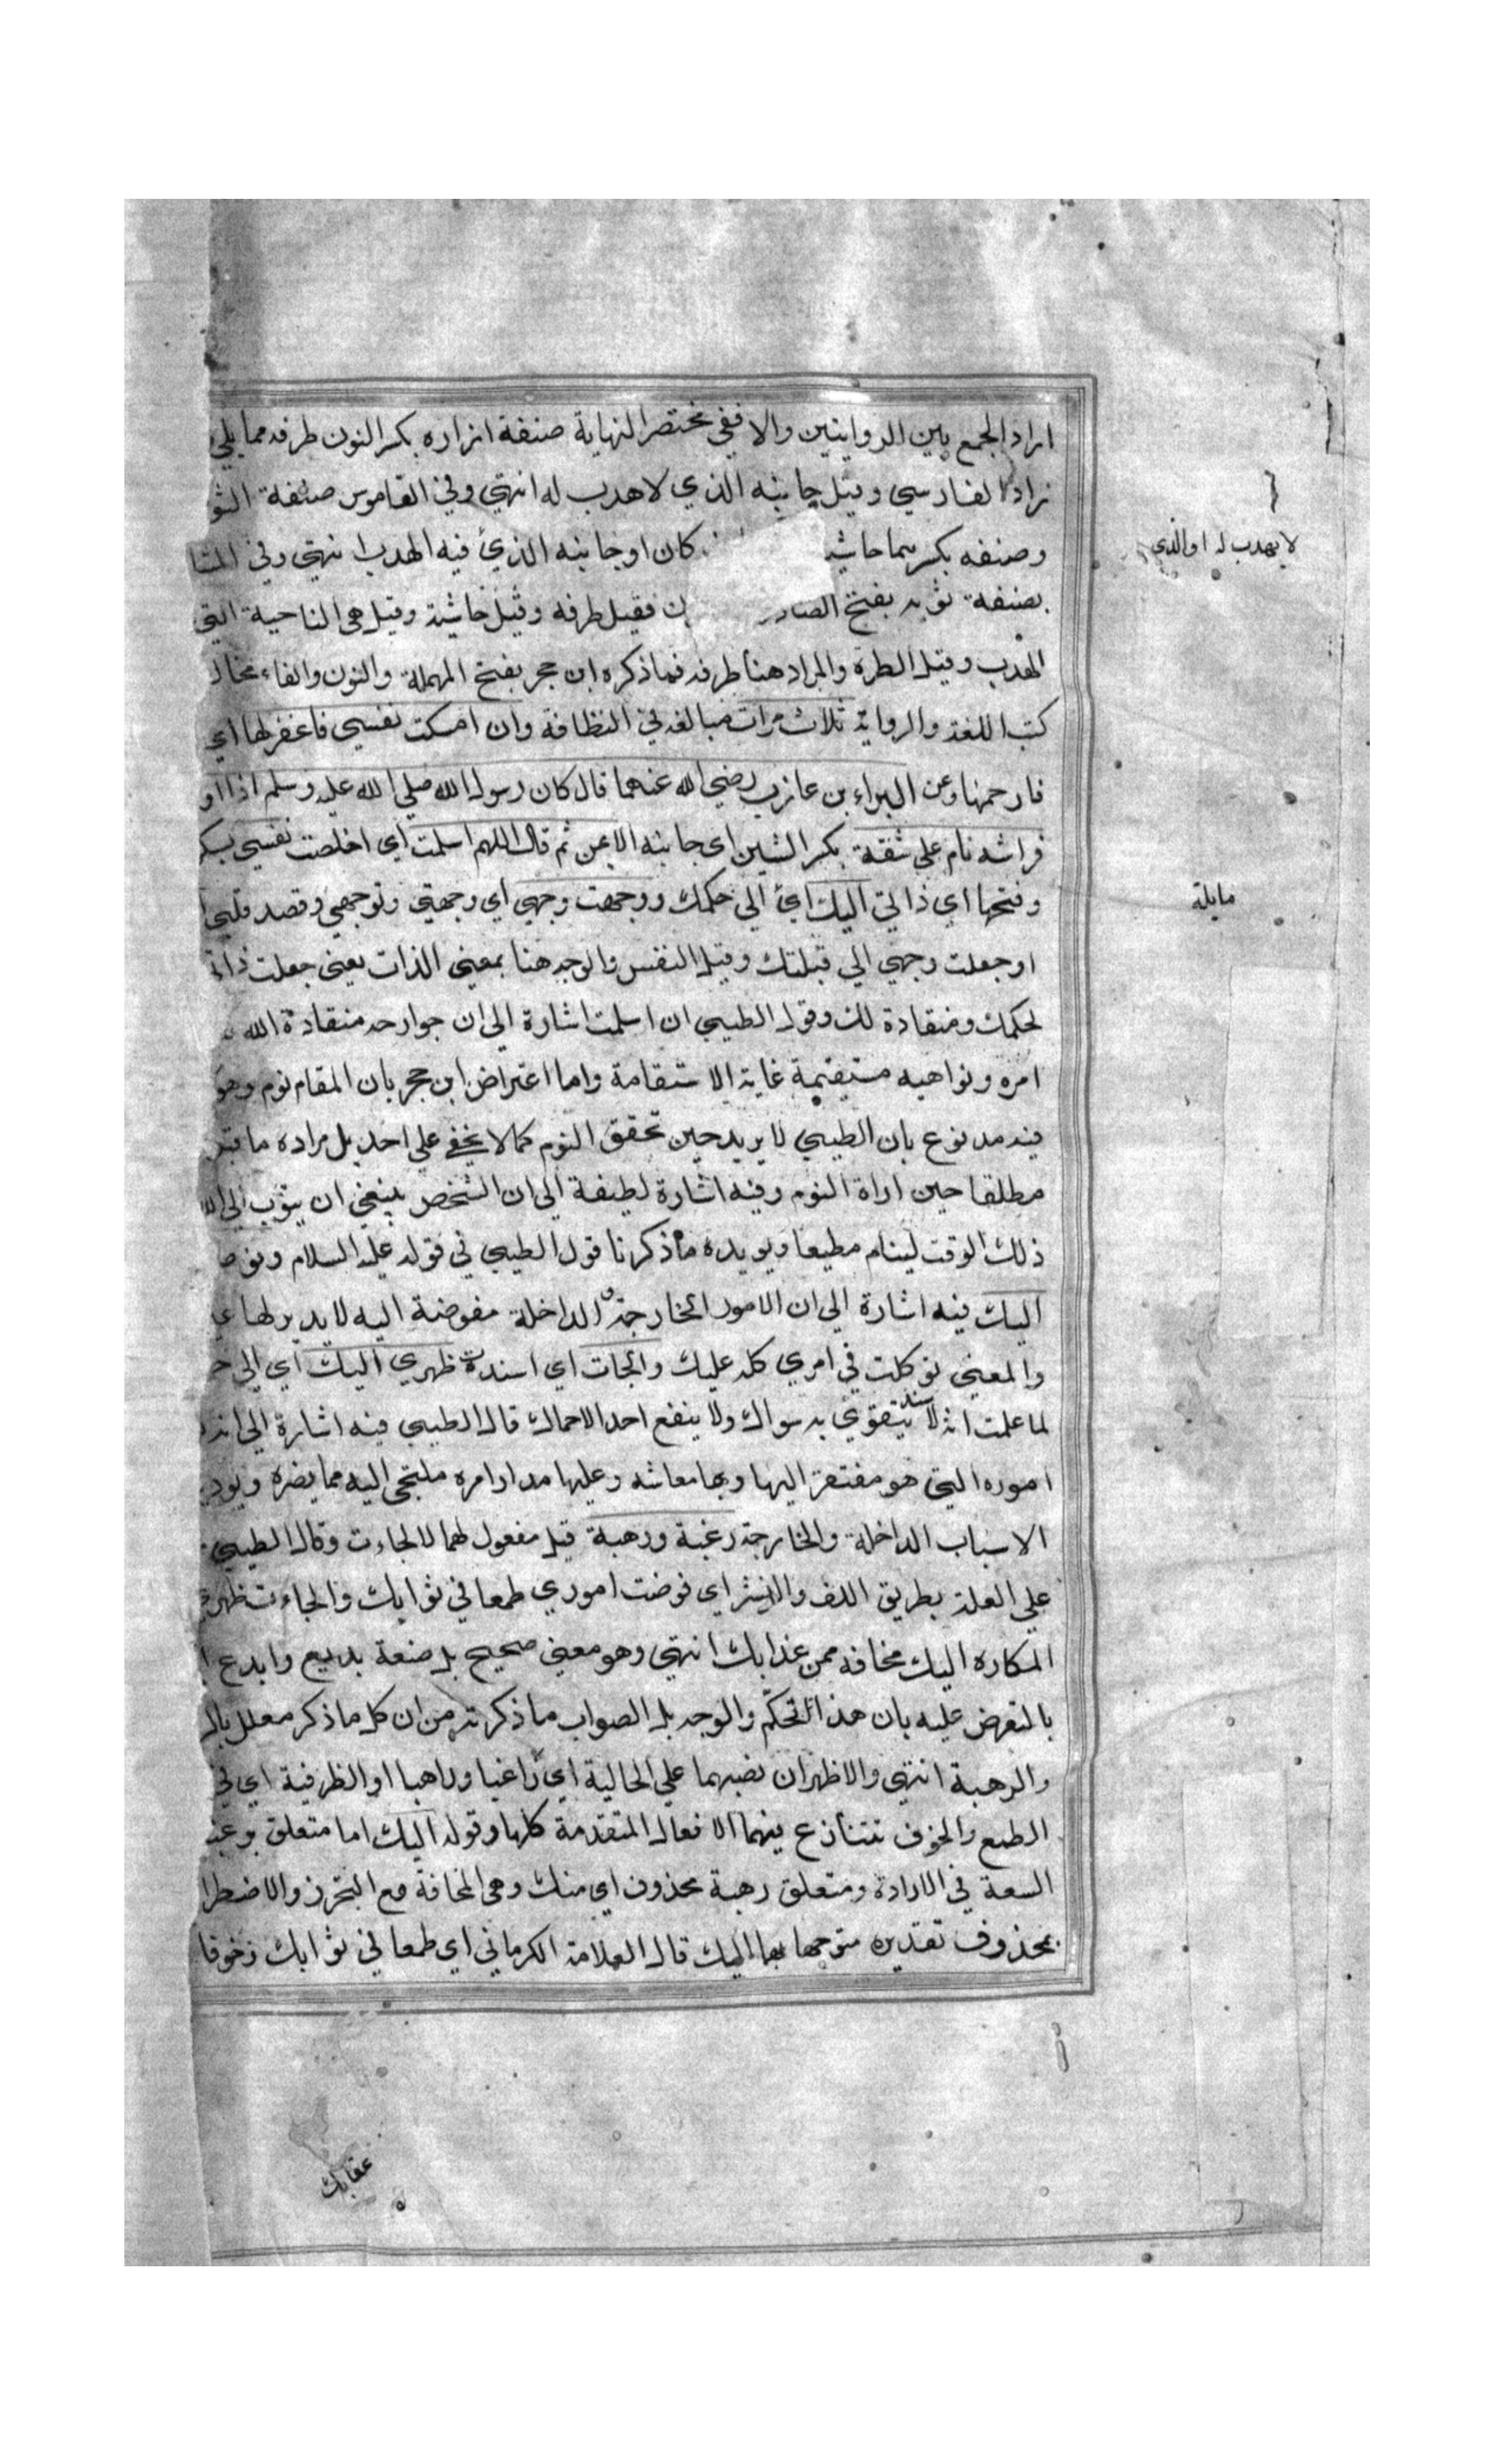 اراد الجمع بين الروايتين والا ففي مختصر النهاية صنفة ازاره بكسر النون طرفه مما يلي
زاد الفارسي وقيل جانبه الذي لا هدب له انتهي وفي القاموس صنفة الثو
وصنفه بكسرهما حاشيـ كان او جانبه الذي فيه الهدب انتهي وفي
بصنفة ثوبه بفتح الصاد فقيل طرفه وقيل حاشيته وقيل هي الناحية التي
الهدب وقيل الطرة والمراد هنا طرفه فما ذكره ابن حجر بفتح المهملة والنون والفاء مخالـ
كتب اللغة والرواية ثلاث مرات مبالغة في النظافة وان امسكت نفسي فاغفر لها اي
فارحمها وعن البراء بن عازب رضي الله عنهما قال كان رسول الله صلي الله عليه وسلم اذا او
فراشه نام علي شقة بكسر الشين اي جانبه الايمن ثم قال اللهم اسلمت اي اخلصت نفسي بسكـ
وفتحها اي ذاتي اليك اي الي حكمك ووجهت وجهي اي وجهتي وتوجهي وقصد قلبي
او جعلت وجهي الي قبلتك وقيل النفس والوجه هنا بمعني الذات يعني جعلت ذاتـ
لحكمك ومنقادة لك وقول الطيبي ان اسلمت اشارة الي ان جوارحه منقادة الله
امره ونواهيه مستقيمة غاية الاستقامة واما اعتراض ابن حجر بان المقام نوم وهو
فيه مدفوع بان الطيبي لا يريد حين تحقق النوم كما لا يخفي علي احد بل مراده ما قبل
مطلقا حين اراة النوم وفيه اشارة لطيفة الي ان الشخص ينبغي ان يتوب الي الله
ذلك الوقت لينام مطيعا ويويده ما ذكرنا قول الطيبي في قوله عليه السلام وفوضـ
اليك فيه اشارة الي ان الامور الخارجة والداخلة مفوضة اليه لا يدير لها غيـ
والمعني توكلت في امري كله عليك والجات اي اسندت ظهري اليك اي الي حـ
لما علمت انه لا سند يتقوي به سواك ولا ينفع احد الا حماك قال الطيبي فيه اشارة الي انه
اموره التي هو مفتقر اليها وبها معاشه وعليها مدار امره ملتجي اليه مما يضره ويوذيـ
الاسباب الداخلة والخارجة رغبة ورهبة قيل مفعول لهما لالجاءت وقال الطيبي
علي العلة بطريق اللف والنشر اي فوضت اموري طمعا في ثوابك والجاءت ظهري
المكاره اليك مخافة من عذابك انتهي وهو معني صحيح بل صنعة بديع وابدع
بالتعرض عليه بان هذا تحكم والوجه بل الصواب ما ذكرته من ان كل ما ذكر معلل بالـ
والرهبة انتهي والاظهر ان نصبهما علي الحالية اي راغبا وراهبا او الظرفية اي في
الطمع والخوف تتنازع فيهما الافعال المتقدمة كلها وقوله اليك اما متعلق برغبـ
السعة في الارادة ومتعلق رهبة محذوف اي منك وهي المخافة مع التحرز والاضطرا
بمحذوف تقديره متوجها بهما اليك قال العلامة الكرماني اي طمعا في ثوابك وخوفا
لا يهدب له او الذي
مايلة
عقابك